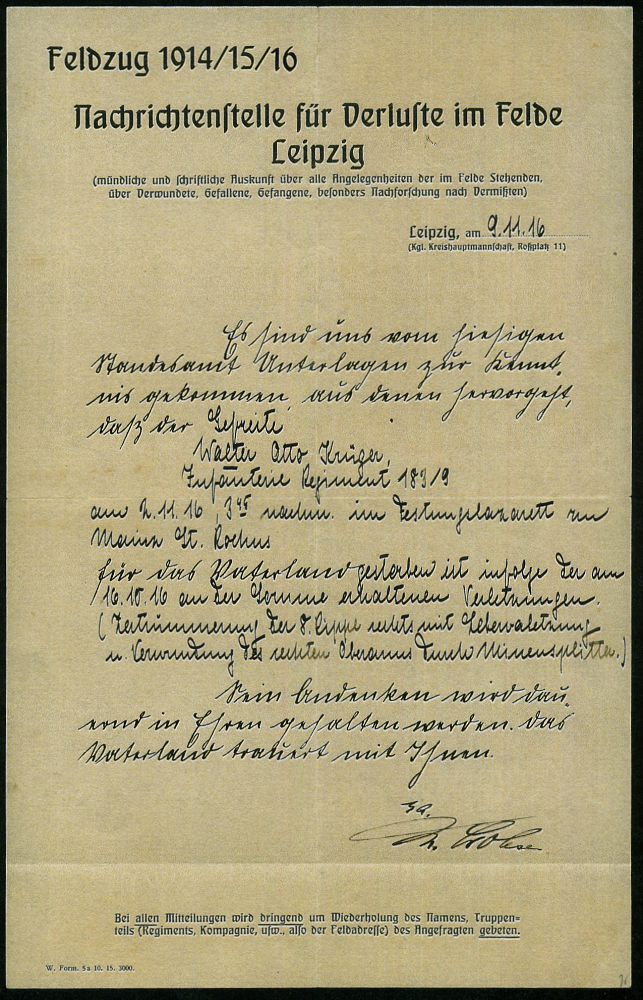 Feldzug 1914/15/16
Nachrichtenstelle für Verluste im Felde
Leipzig
(mündliche und schriftliche Auskunft über alle Angelegenheiten der im Felde Stehenden,
über Verwundete, Gefallene, Gefangene, besonders Nachforschung nach Vermißten)
Leipzig, am 9.11.16
(Kgl. Kreishauptmannschaft, Roßplatz 11)
Es sind uns vom hiesigen
Standesamt Unterlagen zur Kennt-
nis gekommen, aus denen hervorgeht,
daß der Gefreite
Walter Otto Krüger,
Infanterie Regiment 183/9
am 2.11.16, 3 45 nachm. im Festungslazarett in
Mainz St. Rochus
für das Vaterland gestorben ist infolge der am
16.10.16 an der Somme erhaltenen Verletzungen.
(Zertrümmerung der 8. Rippe rechts mit Leberverletzung
u. Verwundung des rechten Oberarms durch Minensplitter.)
Sein Andenken wird dau-
ernd in Ehren gehalten werden. Das
Vaterland trauert mit Ihnen.
Bei allen Mitteilungen wird dringend um Wiederholung des Namens, Truppen-
teils (Regiments, Kompagnie, usw., also der Feldadresse) des Angefragten gebeten.
W. Form. 5a 10. 15. 3000.